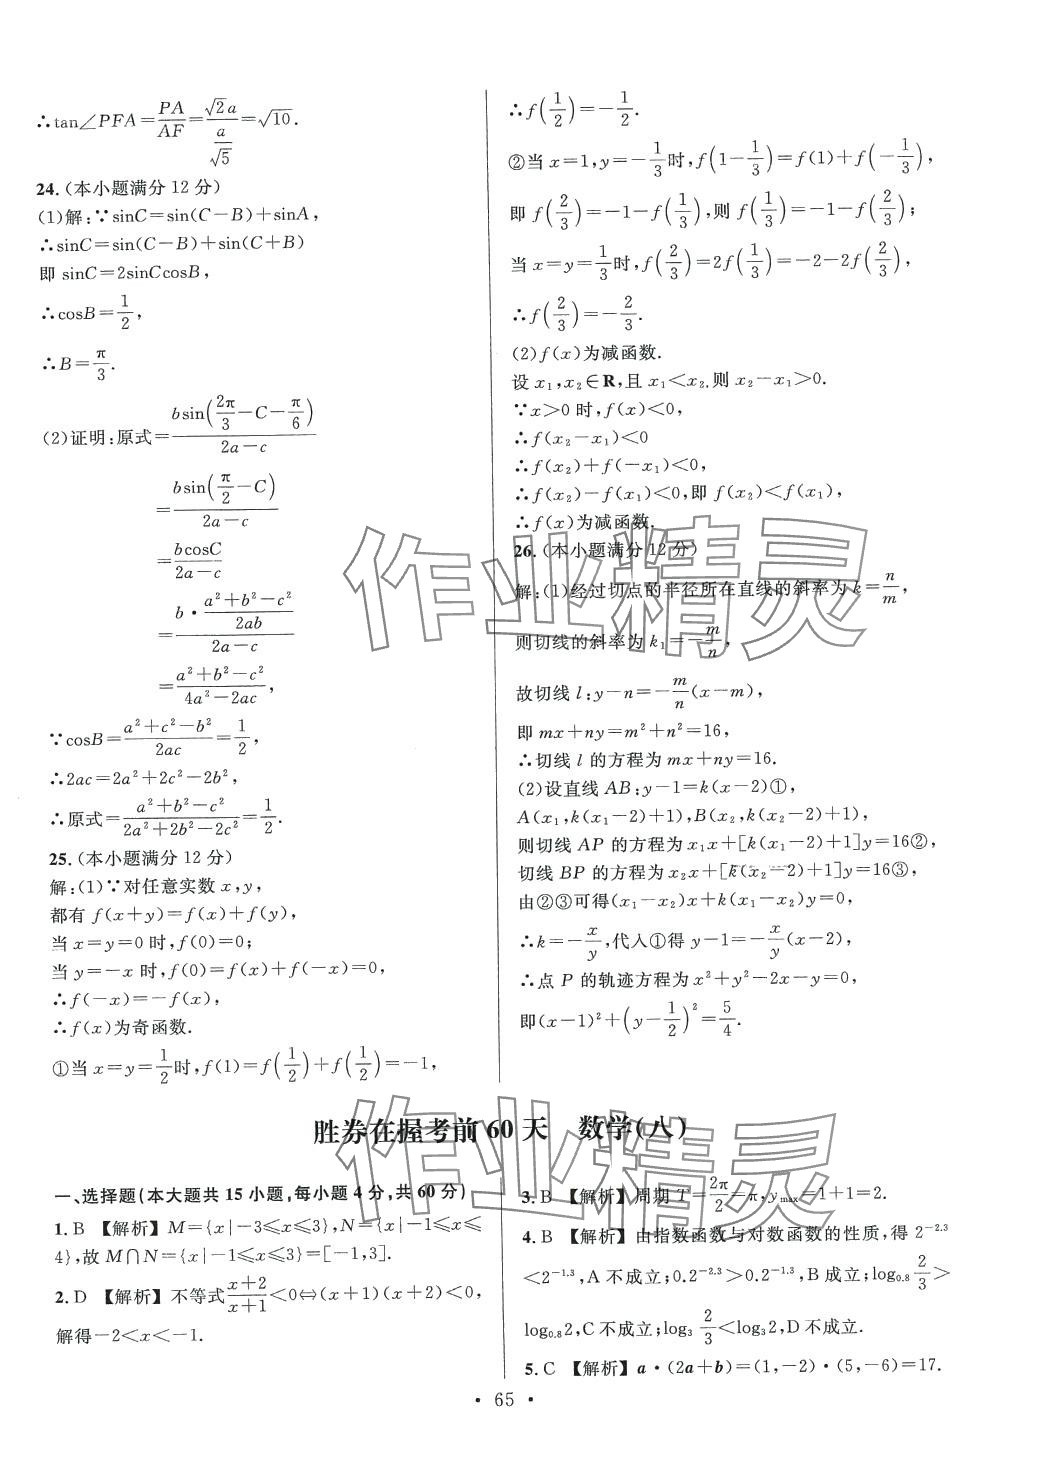 ∴tan∠PFA=PA/AF=(√2a)/(a/√5)=√10.
24.(本小题满分12分)
(1)解:∵sinC=sin(C－B)+sinA,
∴sinC=sin(C－B)+sin(C+B)
即 sinC=2sinCcosB,
∴cosB=1/2,
∴B=π/3.
(2)证明:原式=bsin(2π/3－C－π/6)/(2a－c)
=bsin(π/2－C)/(2a－c)
=bcosC/(2a－c)
=(b·(a²+b²－c²)/2ab)/(2a－c)
=(a²+b²－c²)/(4a²－2ac),
∵cosB=(a²+c²－b²)/2ac=1/2,
∴2ac=2a²+2c²－2b²,
∴原式=(a²+b²－c²)/(2a²+2b²－2c²)=1/2.
25.(本小题满分12分)
解:(1)∵对任意实数 x,y,
都有 f(x+y)=f(x)+f(y),
当 x=y=0 时,f(0)=0;
当 y=－x 时,f(0)=f(x)+f(－x)=0,
∴f(－x)=－f(x),
∴f(x)为奇函数.
①当 x=y=1/2时,f(1)=f(1/2)+f(1/2)=－1,
∴f(1/2)=－1/2.
②当 x=1,y=－1/3时,f(1－1/3)=f(1)+f(－1/3),
即 f(2/3)=－1－f(1/3),则 f(1/3)=－1－f(2/3);
当 x=y=1/3时,f(2/3)=2f(1/3)=－2－2f(2/3),
∴f(2/3)=－2/3.
(2)f(x)为减函数.
设 x₁,x₂∈R,且 x₁<x₂,则 x₂－x₁>0.
∵x>0 时,f(x)<0,
∴f(x₂－x₁)<0
∴f(x₂)+f(－x₁)<0,
∴f(x₂)－f(x₁)<0,即 f(x₂)<f(x₁),
∴f(x)为减函数.
26.(本小题满分12分)
解:(1)经过切点的半径所在直线的斜率为 k=n/m,
则切线的斜率为 k₁=－m/n,
故切线 l:y－n=－m/n(x－m),
即 mx+ny=m²+n²=16,
∴切线 l 的方程为 mx+ny=16.
(2)设直线 AB:y－1=k(x－2)①,
A(x₁,k(x₁－2)+1),B(x₂,k(x₂－2)+1),
则切线 AP 的方程为 x₁x+[k(x₁－2)+1]y=16②,
切线 BP 的方程为 x₂x+[k(x₂－2)+1]y=16③,
由②③可得(x₁－x₂)x+k(x₁－x₂)y=0,
∴k=－x/y,代入①得 y－1=－x/y(x－2),
∴点 P 的轨迹方程为 x²+y²－2x－y=0,
即(x－1)²+(y－1/2)²=5/4.
胜券在握考前60天 数学(八)
一、选择题(本大题共15小题,每小题4分,共60分)
1.B 【解析】M={x|－3≤x≤3},N={x|－1≤x≤
4},故 M∩N={x|－1≤x≤3}=[－1,3].
2.D 【解析】不等式(x+2)/(x+1)<0⇔(x+1)(x+2)<0,
解得－2<x<－1.
3.B 【解析】周期 T=2π/2=π,yₘₐₓ=1+1=2.
4.B 【解析】由指数函数与对数函数的性质,得 2^－2.3
<2^－1.3,A 不成立;0.2^－2.3>0.2^－1.3,B成立;log₀.₈ 2/3>
log₀.₈2,C不成立;log₃ 2/3<log₃2,D不成立.
5.C 【解析】a·(2a+b)=(1,－2)·(5,－6)=17.
· 65 ·
作业精灵
作业精灵